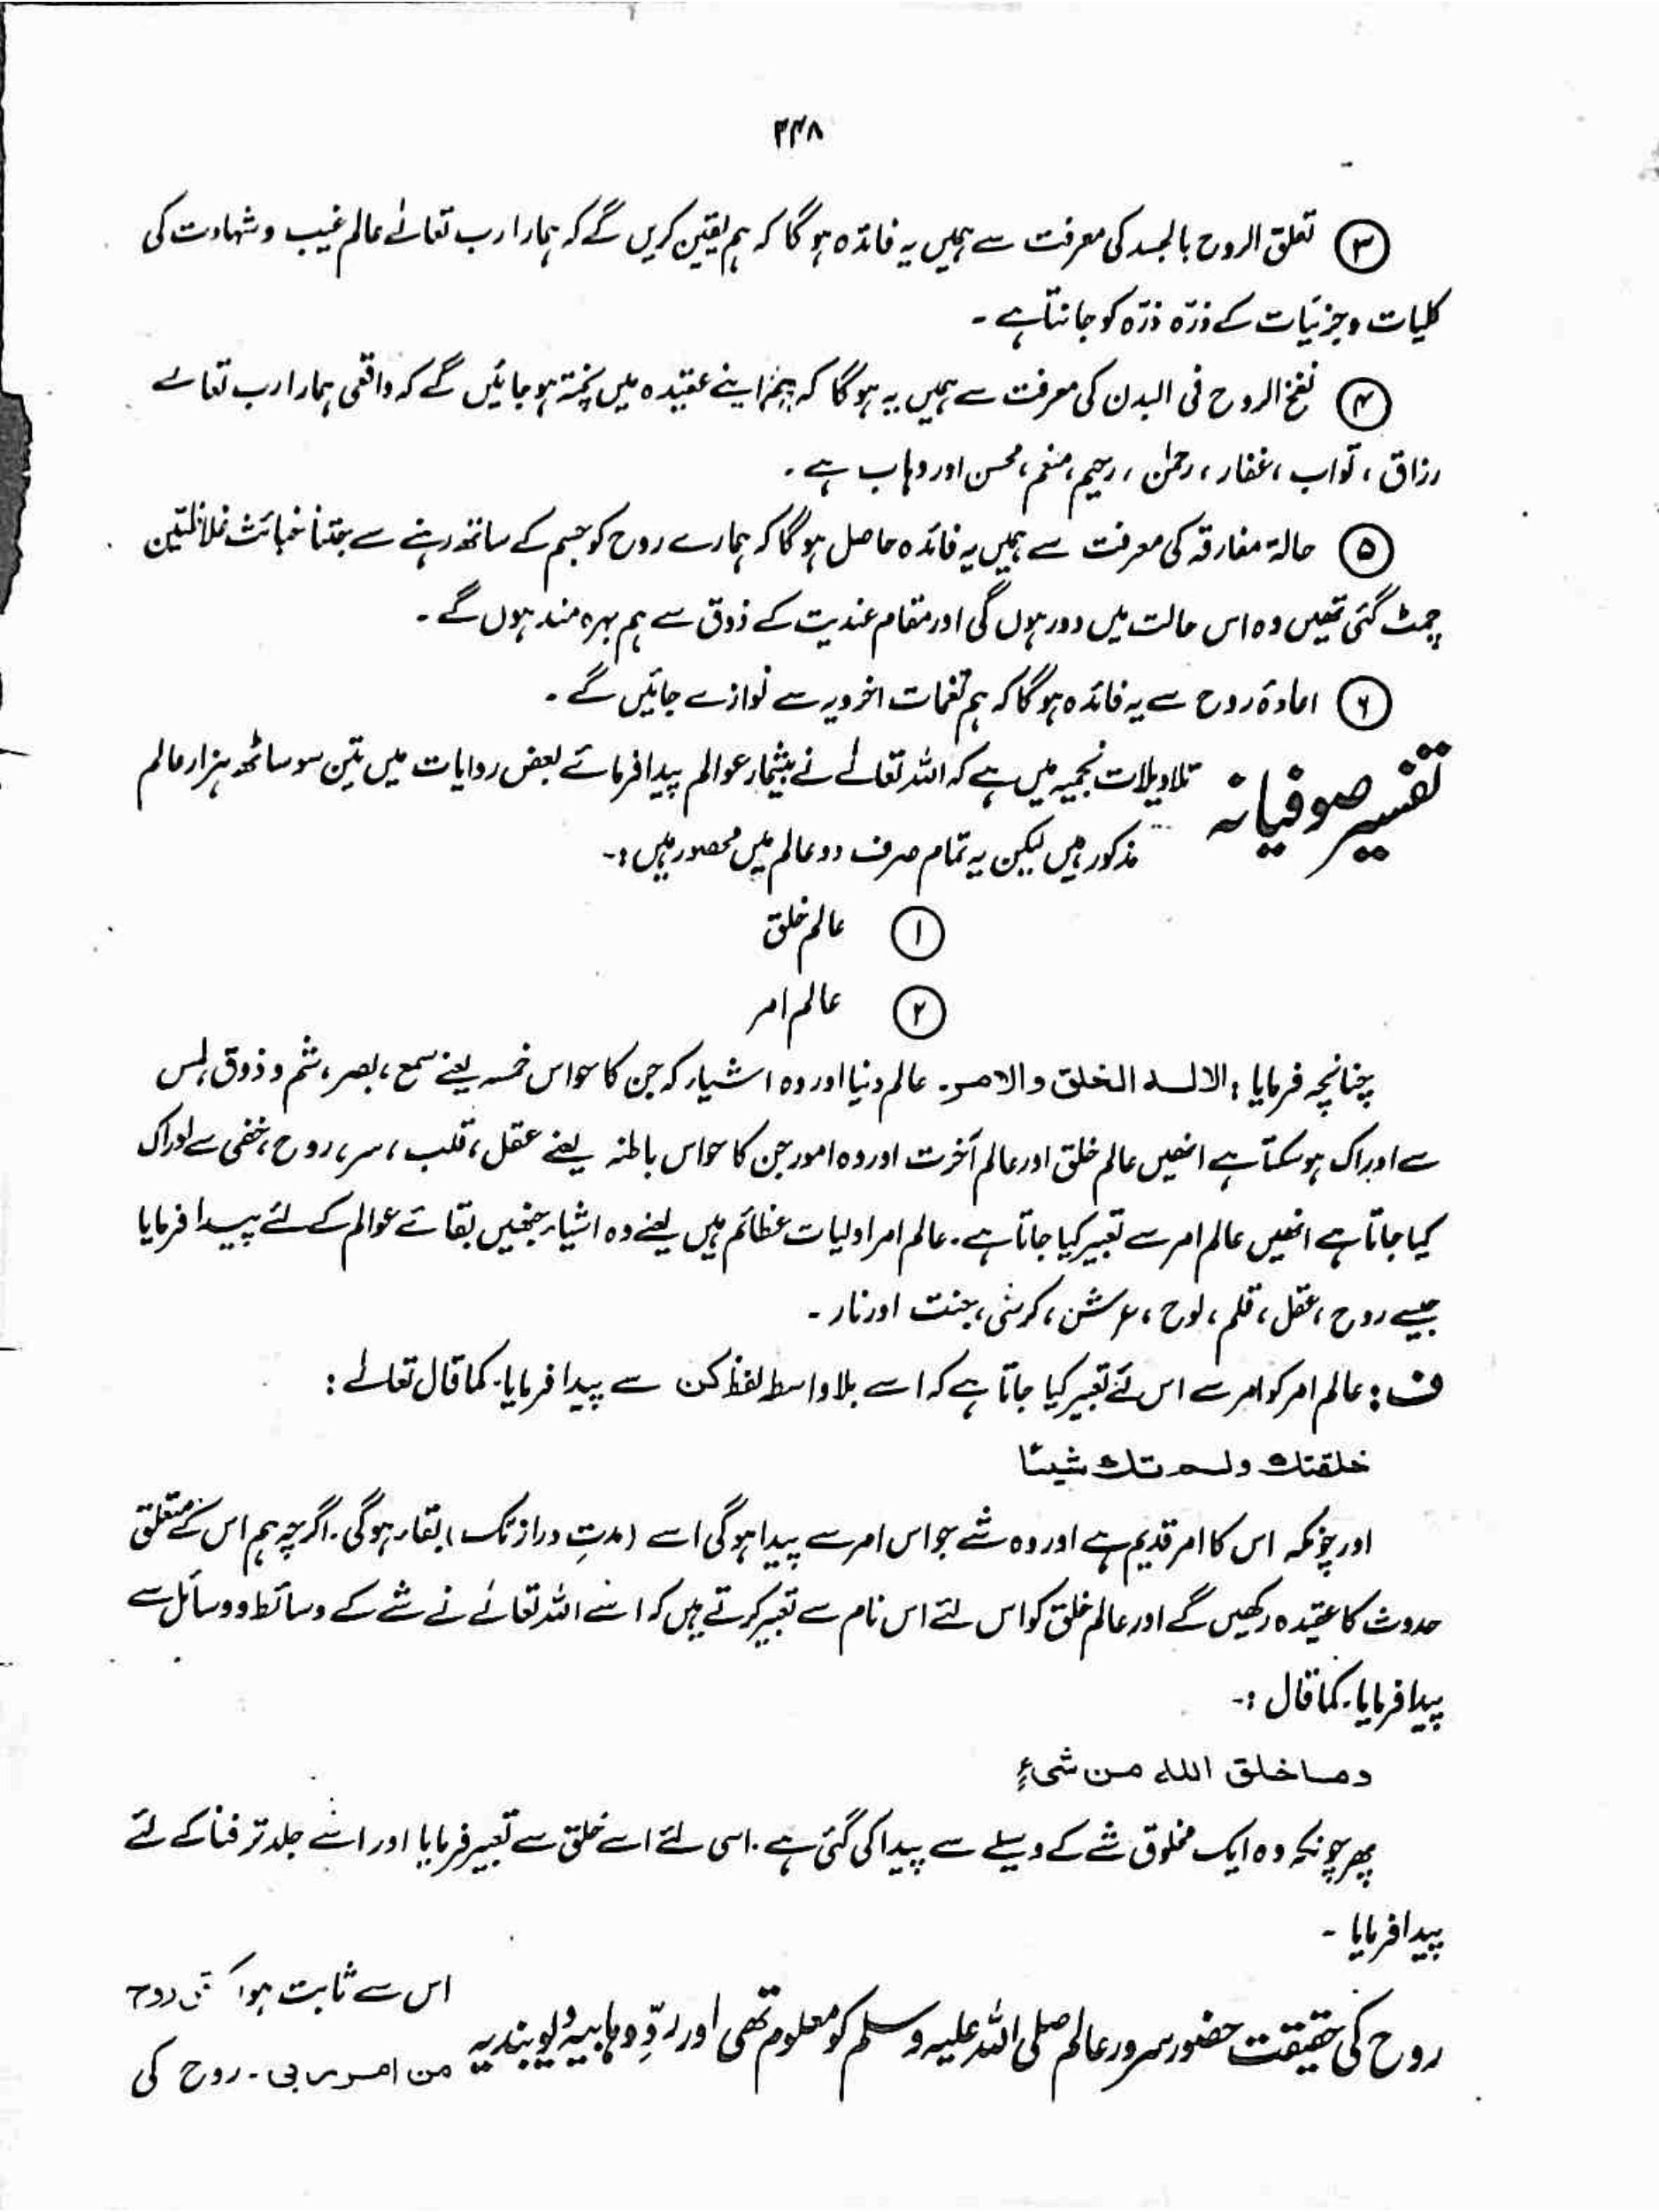 ۲۴۸
③ تعلق الروح بالجسد کی معرفت سے ہمیں یہ فائدہ ہوگا کہ ہم یقین کریں گے کہ ہمارا رب تعالےٰ عالم غیب و شہادت کی
کلیات و جزئیات کے ذرّہ ذرّہ کو جانتا ہے ۔
④ نفخ الروح فی البدن کی معرفت سے ہمیں یہ ہوگا کہ ہم اپنے عقیدہ میں پختہ ہو جائیں گے کہ واقعی ہمارا رب تعالےٰ
رزاق ، تواب ، غفار ، رحمٰن ، رحیم ، منعم ، محسن اور وہاب ہے ۔
⑤ حالۃ مفارقہ کی معرفت سے ہمیں یہ فائدہ حاصل ہوگا کہ ہمارے روح کو جسم کے ساتھ رہنے سے جتنا خبائث غلاظتیں
چمٹ گئی تھیں وہ اس حالت میں دور ہوں گی اور مقام عندیت کے ذوق سے ہم بہرہ مند ہوں گے ۔
⑥ اعادۂ روح سے یہ فائدہ ہوگا کہ ہم نعمات اخرویہ سے نوازے جائیں گے ۔
تفسیر صوفیانہ تلاویلات نجمیہ میں ہے کہ اللہ تعالےٰ نے بیشمار عوالم پیدا فرمائے بعض روایات میں تین سو ساٹھ ہزار عالم
مذکور ہیں لیکن یہ تمام صرف دو عالم میں محصور ہیں :۔
① عالم خلق
② عالم امر
چنانچہ فرمایا : الا لہ الخلق والامر ۔ عالم دنیا اور وہ اشیاء کہ جن کا حواس خمسہ یعنے سمع ، بصر ، شم و ذوق ، لمس
سے ادراک ہو سکتا ہے انھیں عالم خلق اور عالم آخرت اور وہ امور جن کا حواس باطنہ یعنے عقل ، قلب ، سر ، روح ، خفی سے ادراک
کیا جاتا ہے انھیں عالم امر سے تعبیر کیا جاتا ہے ۔ عالم امر اولیات عظائم ہیں یعنے وہ اشیاء جنھیں بقائے عوالم کے لئے پیدا فرمایا
جیسے روح ، عقل ، قلم ، لوح ، عرش ، کرسی ، جنت اور نار ۔
ف : عالم امر کو امر سے اس لئے تعبیر کیا جاتا ہے کہ اسے بلا واسطہ لفظ کن سے پیدا فرمایا ۔ کما قال تعالےٰ :
خلقتک ولم تک شیئا
اور چونکہ اس کا امر قدیم ہے اور وہ شے جو اس امر سے پیدا ہوگی اسے (مدتِ دراز تک) بقاء ہوگی ۔ اگرچہ ہم اس کے متعلق
حدوث کا عقیدہ رکھیں گے اور عالم خلق کو اس لئے اس نام سے تعبیر کرتے ہیں کہ اسے اللہ تعالےٰ نے شے کے وسائط و وسائل سے
پیدا فرمایا ۔ کما قال :۔
وما خلق اللہ من شیءٍ
پھر چونکہ وہ ایک مخلوق شے کے وسیلے سے پیدا کی گئی ہے ۔ اسی لئے اسے خلق سے تعبیر فرمایا اور اسے جلد تر فنا کے لئے
پیدا فرمایا ۔
روح کی حقیقت حضور سرور عالم صلی اللہ علیہ وسلم کو معلوم تھی اور ردِّ وہابیہ دیوبندیہ
اس سے ثابت ہوا روح
من امر ربی ۔ روح کی